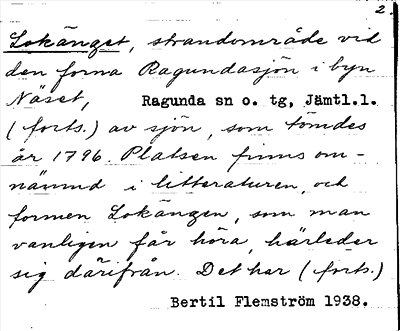 2.
Lokänget, strandområde vid
den forna Ragundasjön i byn
Näset, Ragunda sn o. tg, Jämtl.l.
(forts.) av sjön, som tömdes
år 1796. Platsen finns om-
nämnd i litteraturen, och
formen Lokängen, som man
vanligen får höra, härleder
sig därifrån. Det har (forts.)
Bertil Flemström 1938.